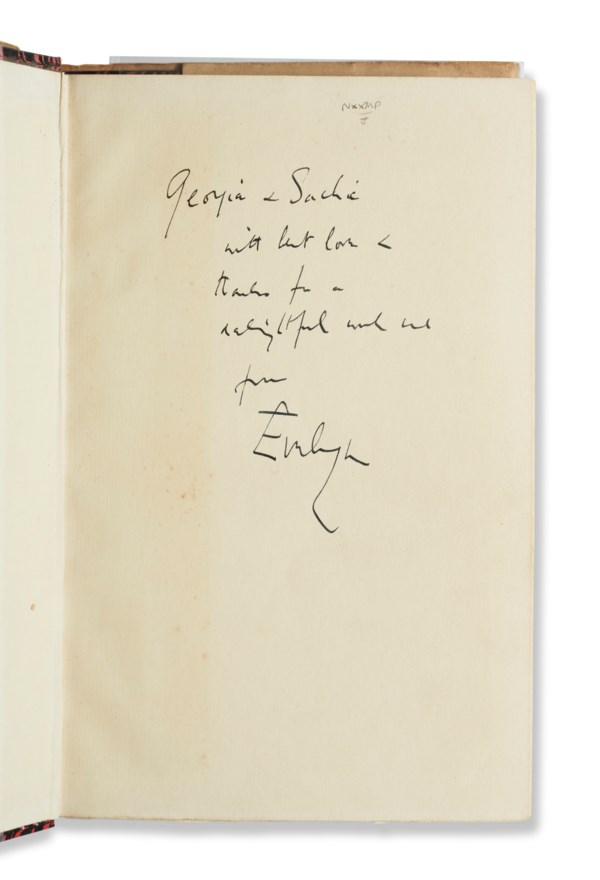 Georgia & Sachie
with best love &
thanks for a
delightful week end
from
Evelyn